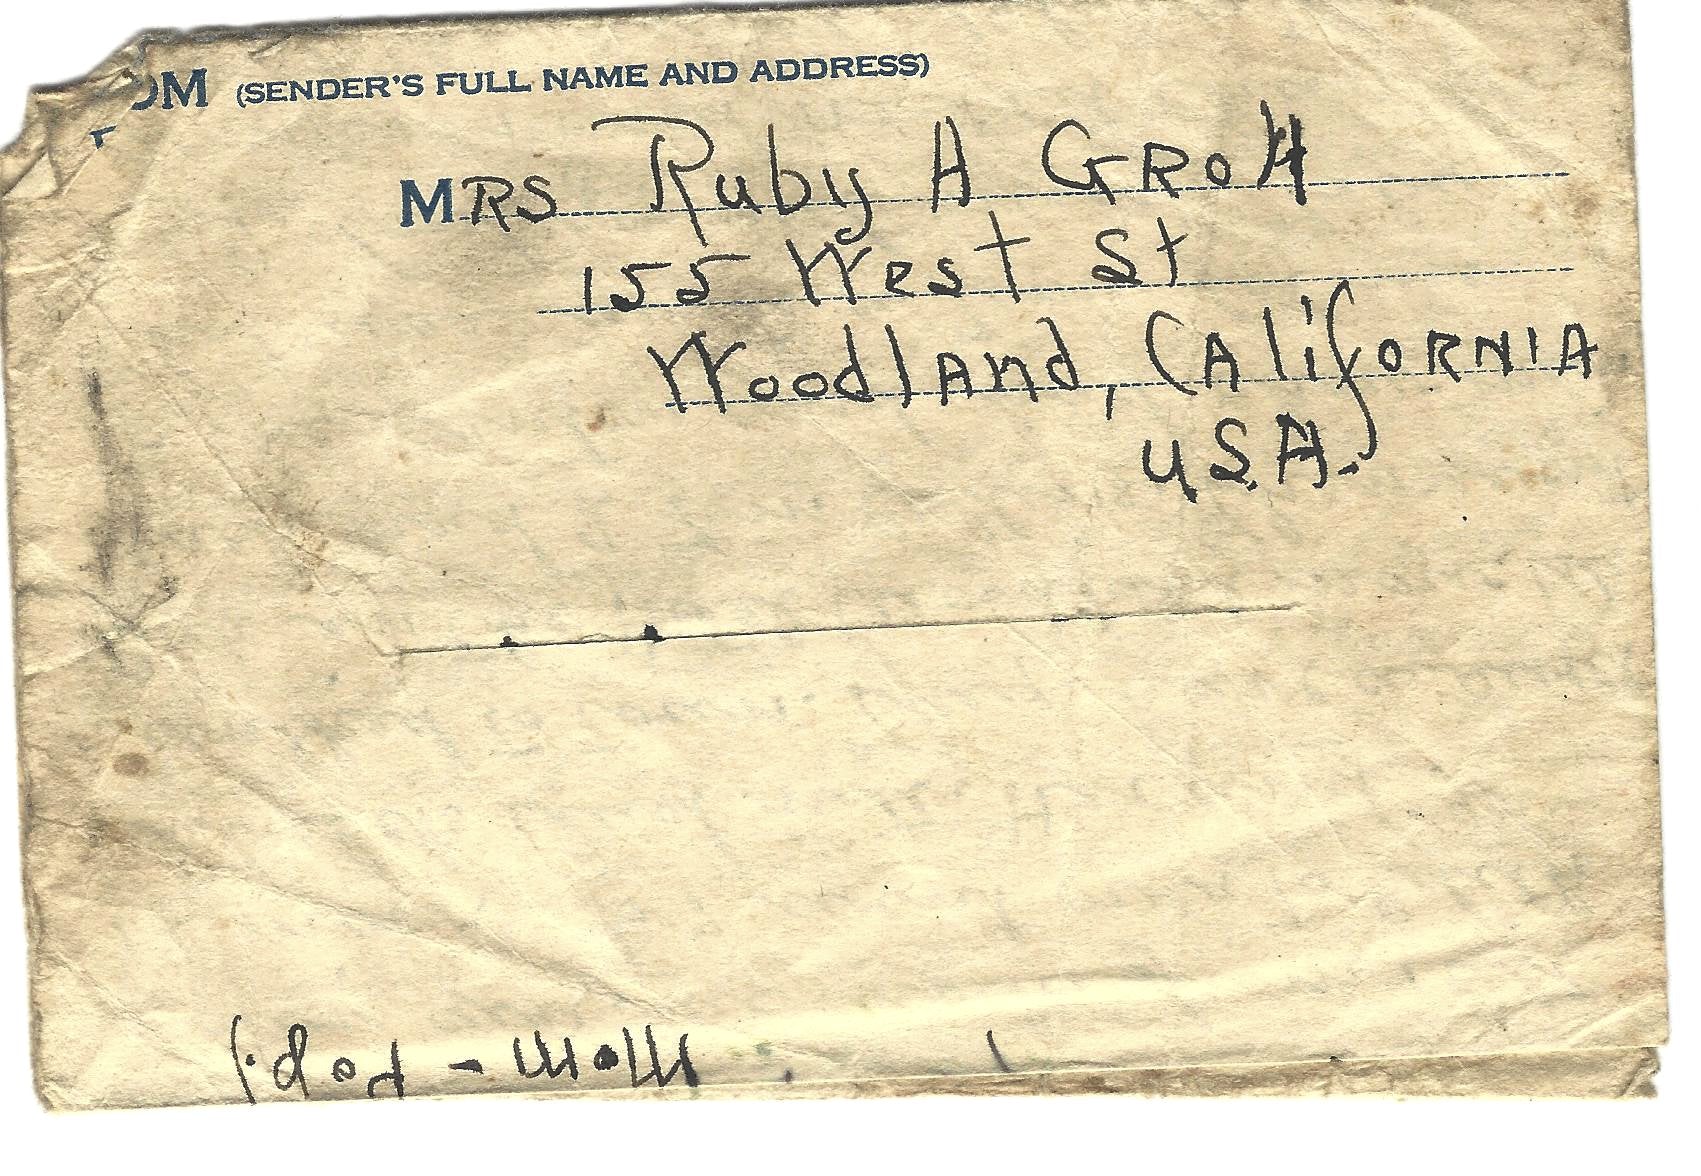 OM (SENDER'S FULL NAME AND ADDRESS)
MRS Ruby A GROH
155 West St
WoodlAnd, CAlifORNIA
U.S.A.
Mom - Pop.